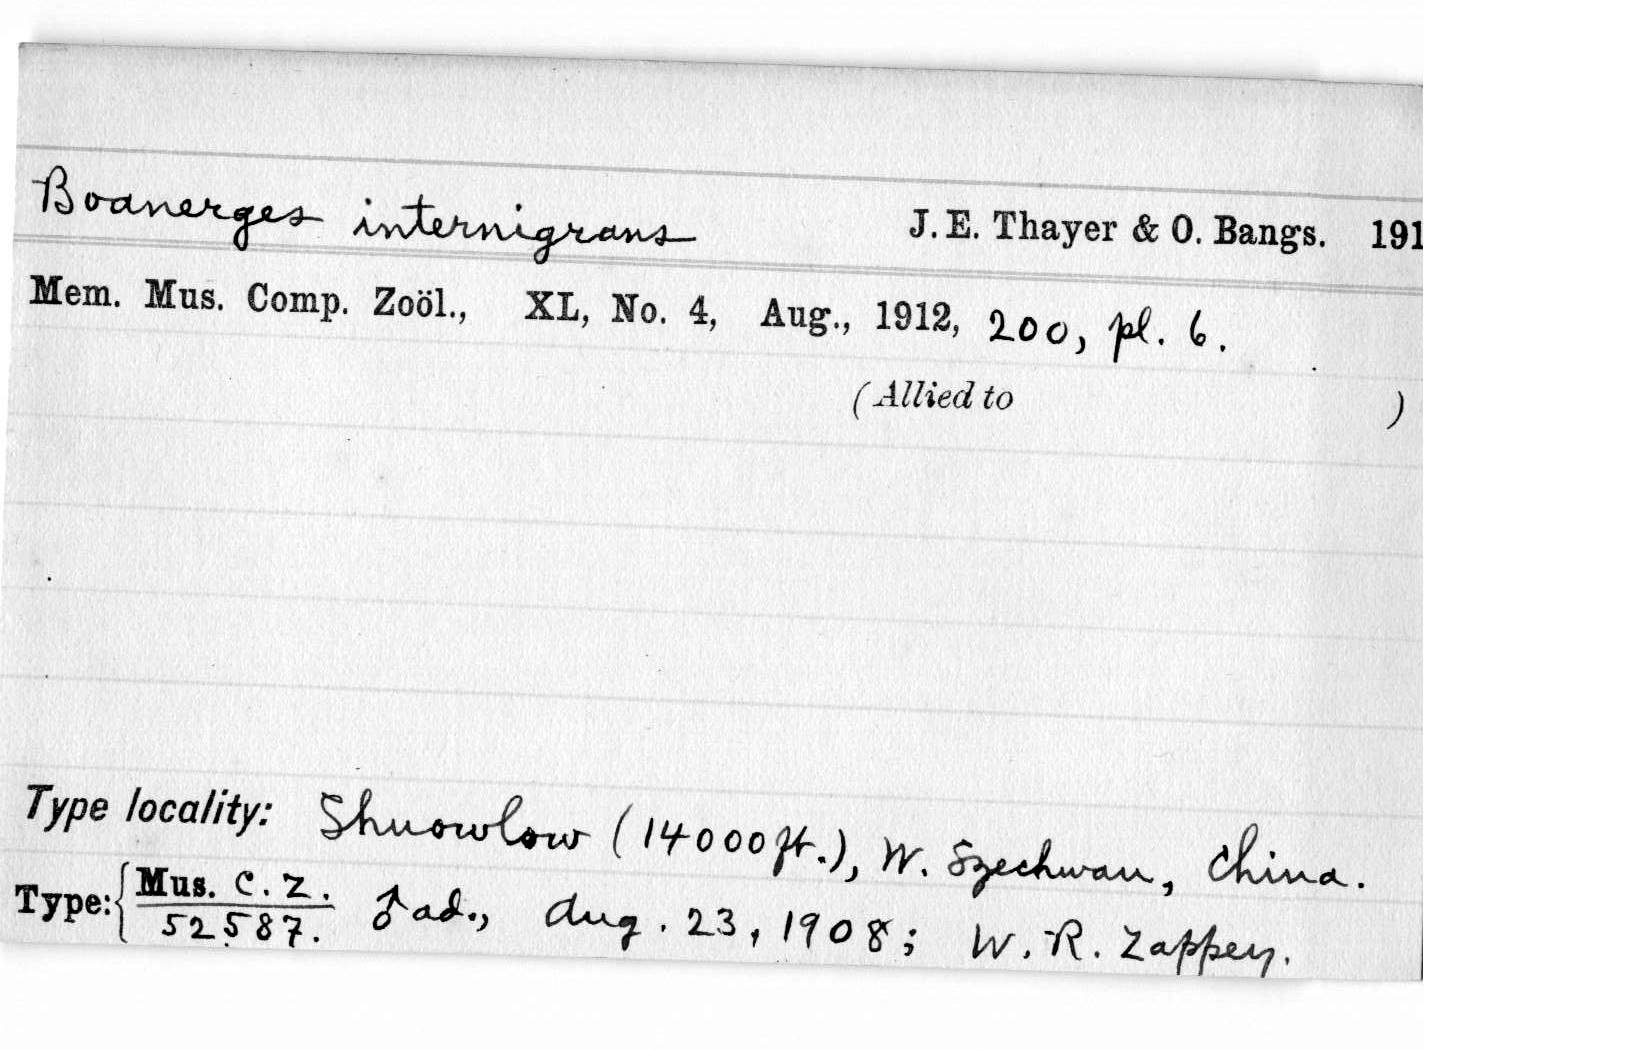 Boanerges internigrans J. E. Thayer & O. Bangs. 191
Mem. Mus. Comp. Zoöl., XL, No. 4, Aug., 1912, 200, pl. 6.
(Allied to )
Type locality: Shuowlow (14000 ft.), W. Szechwan, China.
Type: { Mus. C. Z. ♂ ad., Aug. 23, 1908; W. R. Zappey.
52587.